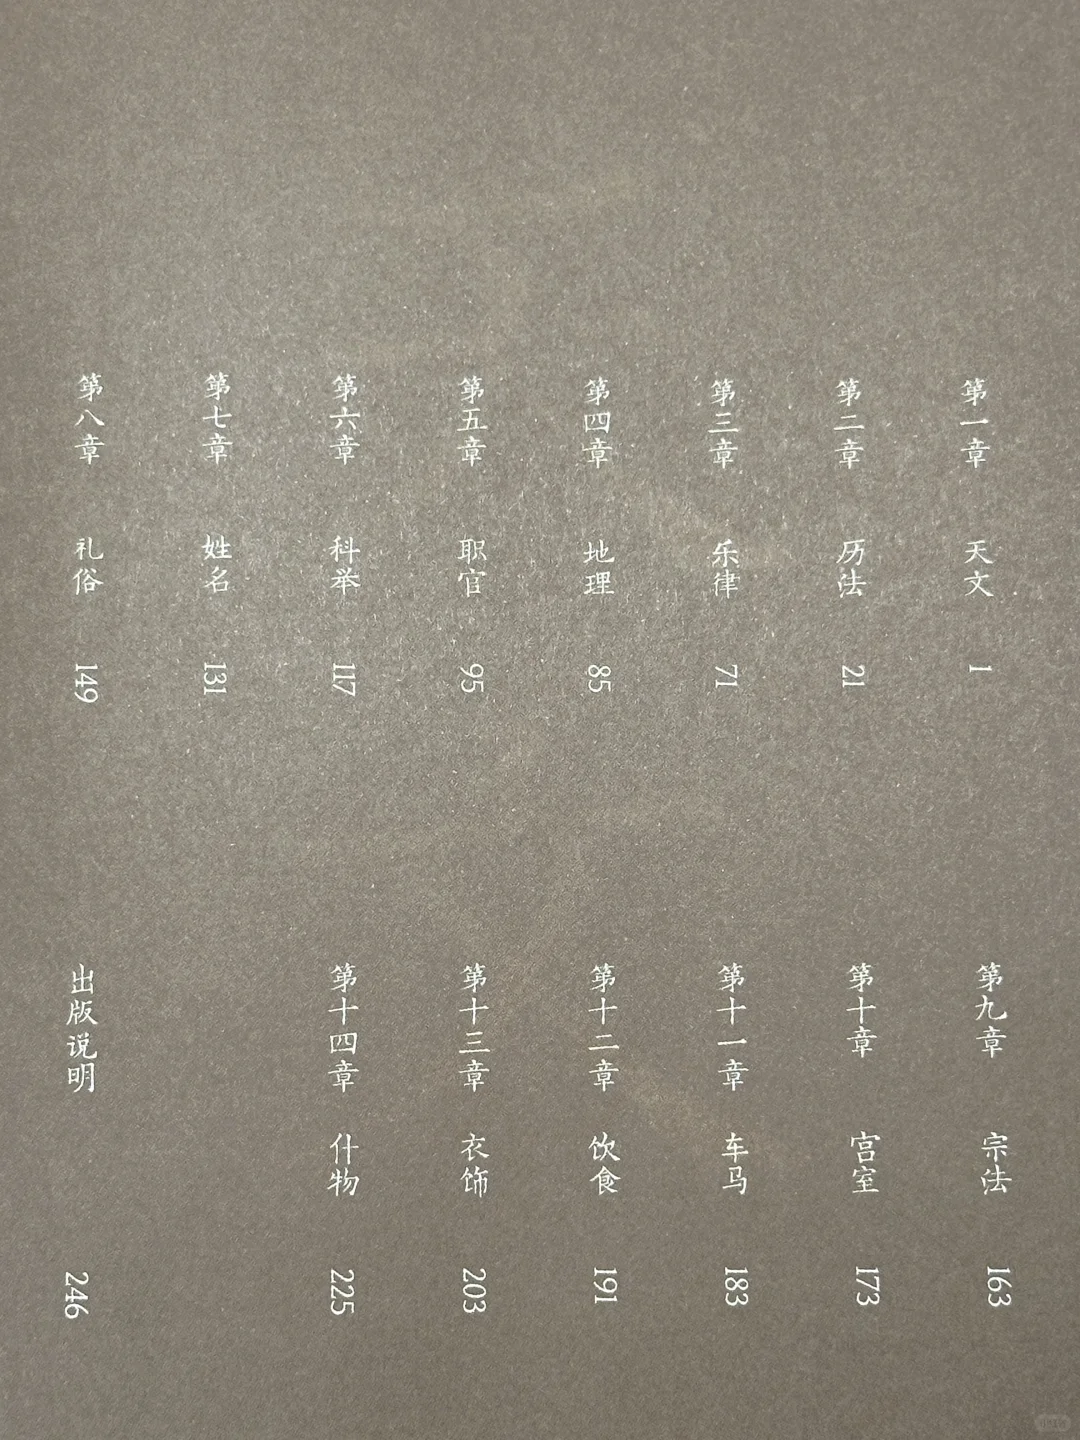 第一章 天文 1
第二章 历法 21
第三章 乐律 71
第四章 地理 85
第五章 职官 95
第六章 科举 117
第七章 姓名 131
第八章 礼俗 149
第九章 宗法 163
第十章 宫室 173
第十一章 车马 183
第十二章 饮食 191
第十三章 衣饰 203
第十四章 什物 225
出版说明 246